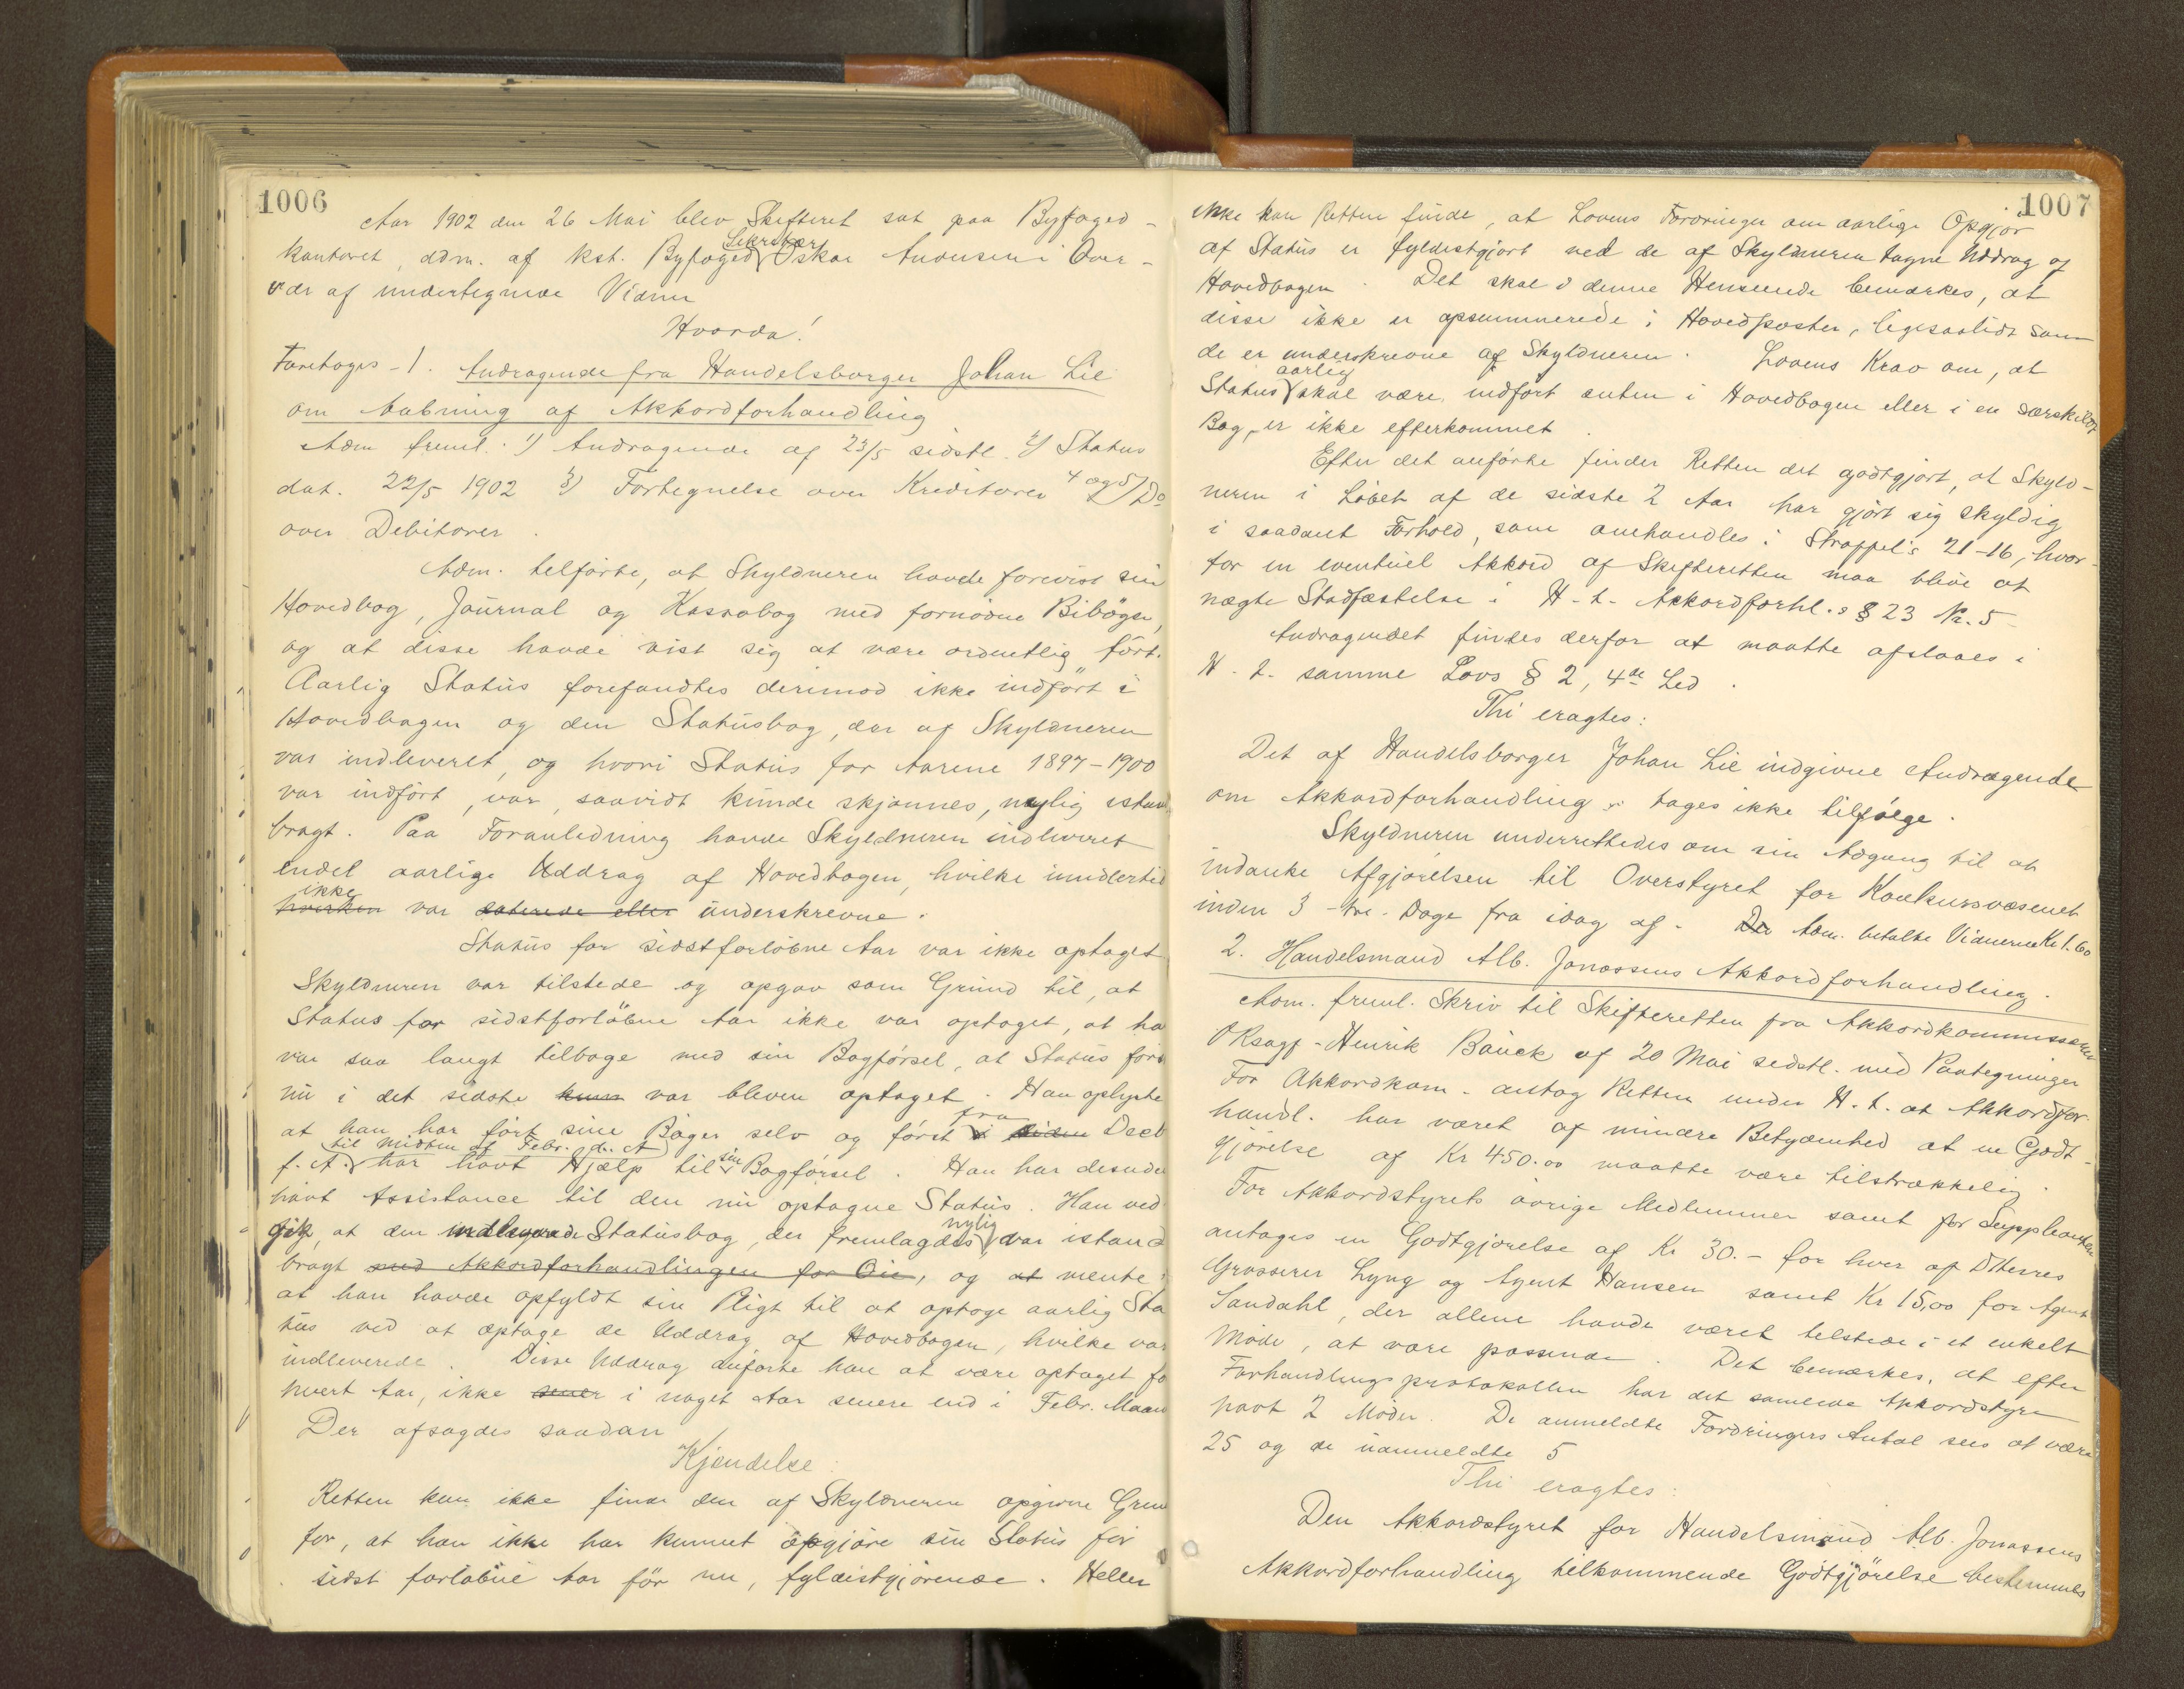 1006
Aar 1902 den 26 Mai blev Skifteret sat paa Byfoged-
kontoret, adm. af kst. Byfoged Sekretær Oskar Anonsen i Over-
vær af undertegnede Vidner
Hvorda!
Foretoges - 1. Andragende fra Handelsborger Johan Lie
om Aabning af Akkordforhandling
Adm freml. 1) Andragende af 23/5 sidstl. 2) Status
dat. 22/5 1902 3) Fortegnelse over Kreditorer 4 og 5) Do
over Debitorer.
Adm. tilførte, at Skyldneren havde forevist sin
Hovedbog, Journal og Kassabog med fornødne Bibøger,
og at disse havde vist sig at være ordentlig ført.
Aarlig Status forefandtes derimod ikke indført i
Hovedbogen og den Statusbog, der af Skyldneren
var indleveret, og hvori Status for Aarene 1897-1900
var indført, var, saavidt kunde skjønnes, nylig istand
bragt. Paa Foranledning havde Skyldneren indleveret
endel aarlige Uddrag af Hovedbogen, hvilke imidlertid
hverken ikke var daterede eller underskrevne.
Status for sidstforløbne Aar var ikke optaget
Skyldneren var tilstede og opgav som Grund til, at
Status for sidstforløbne Aar ikke var optaget, at ha
var saa langt tilbage med sin Bogførsel, at Status først
nu i det sidste var bleven optaget. Han oplyste
at han har ført sine Bøger selv og først fra Decb
f. A. til Midten af Febr. d. A har havt Hjælp til sin Bogførsel. Han har desuden
havt Assistance til den nu optagne Status. Han ved
gik, at den indleverede Statusbog, der fremlagdes nylig var istand
bragt med Akkordforhandlingen for Øie, og at mente
at han havde opfyldt sin Pligt til at optage aarlig Sta
tus ved at optage de Uddrag af Hovedbogen, hvilke var
indleverede. Disse Uddrag anførte han at være optaget fo
hvert Aar, ikke senere i noget Aar senere end i Febr. Maan
Der afsagdes saadan
Kjendelse:
Retten kan ikke finde den af Skyldneren opgivne Grun
for, at han ikke har kunnet opgjøre sin Status for
sidst forløbne Aar før nu, fyldestgjørende. Heller
1007
ikke kan Retten finde, at Lovens Fordringer om aarlige Opgjør
af Status er fyldestgjort ved de af Skyldneren tagne Uddrag af
Hovedbogen. Det skal i denne Henseende bemærkes, at
disse ikke er opsummerede i Hovedposter, ligesaalidt som
de er underskrevne af Skyldneren. Lovens Krav om, at
Status aarlig skal være indført enten i Hovedbogen eller i en særskildt
Bog, er ikke efterkommet.
Efter det anførte finder Retten det godtgjort, at Skyld-
neren i Løbet af de sidste 2 Aar har gjort sig skyldig
i saadant Forhold, som omhandles i Straffel's 21-16, hvor-
for en eventuel Akkord af Skifteretten maa blive at
nægte Stadfæstelse i H. t. Akkordforhl.s § 23 Nr. 5
Andragendet findes derfor at maatte afslaaes i
H. t. samme Lovs § 2, 4de Led.
Thi eragtes:
Det af Handelsborger Johan Lie indgivne Andragende
om Akkordforhandling tages ikke tilfølge.
Skyldneren underrettedes om sin Adgang til at
indanke Afgjørelsen til Overstyret for Konkursvæsenet
inden 3 - tre - Dage fra idag af. Adm. betalte Vidnerne Kr 1.60
2. Handelsmand Alb. Jonassens Akkordforhandling.
Adm. freml. Skriv til Skifteretten fra Akkordkommissæren
ORsagf. Henrik Bauck af 20 Mai sidstl. med Paategninger
For Akkordkom. antog Retten under H. t. at Akkordfor-
handl. har været af mindre Betydenhed at en Godt-
gjørelse af Kr 450.00 maatte være tilstrækkelig.
For Akkordstyrets øvrige Medlemmer samt for Suppleanten
antages en Godtgjørelse af Kr 30.- for hver af DHerrer
Grosserer Lyng og Agent Hansen samt Kr 15,00 for Agent
Sandahl, der allene havde været tilstede i et enkelt
Møde, at være passende. Det bemærkes, at efter
Forhandlingsprotokollen har det samlede Akkordstyre
havt 2 Møder. De anmeldte Fordringers Antal sees at være
25 og de uanmeldte 5
Thi eragtes:
Den Akkordstyret for Handelsmand Alb. Jonassens
Akkordforhandling tilkommende Godtgjørelse bestemmes